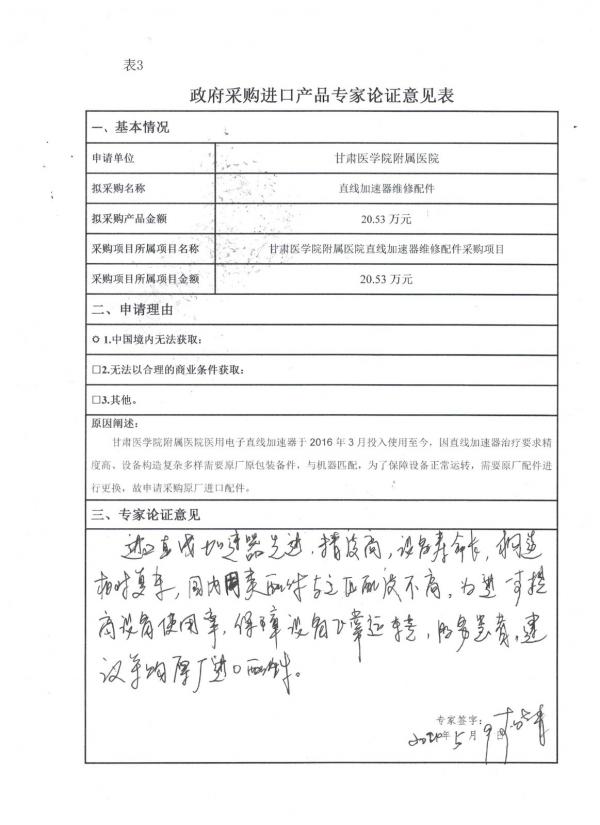 表3
政府采购进口产品专家论证意见表
一、基本情况
申请单位 甘肃医学院附属医院
拟采购名称 直线加速器维修配件
拟采购产品金额 20.53 万元
采购项目所属项目名称 甘肃医学院附属医院直线加速器维修配件采购项目
采购项目所属项目金额 20.53 万元
二、申请理由
✿ 1.中国境内无法获取;
□2.无法以合理的商业条件获取;
□3.其他。
原因阐述:
甘肃医学院附属医院医用电子直线加速器于 2016 年 3 月投入使用至今，因直线加速器治疗要求精
度高、设备构造复杂多样需要原厂原包装备件，与机器匹配，为了保障设备正常运转，需要原厂配件进
行更换，故申请采购原厂进口配件。
三、专家论证意见
进口直线加速器先进，精度高，设备寿命长，构造
相对复杂，国内同类配件与之匹配度不高，为进一步提
高设备使用率，保障设备正常运转，服务患者，建
议采购原厂进口配件。
专家签字:
年 5 月 9 日